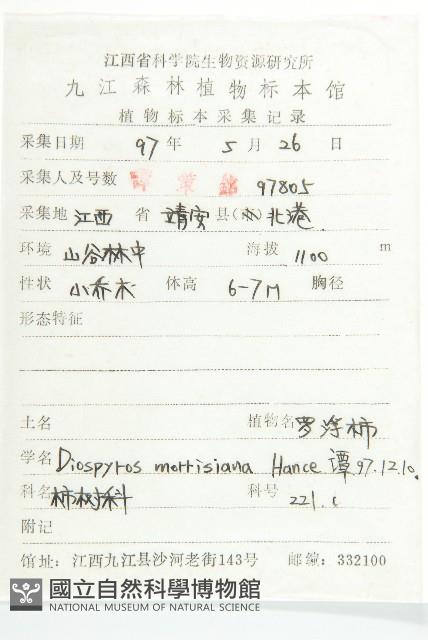 江西省科学院生物资源研究所
九江森林植物标本馆
植物标本采集记录
采集日期 97 年 5 月 26 日
采集人及号数 谭策铭 97805
采集地 江西 省 靖安 县(市) 北港
环境 山谷林中 海拔 1100 m
性状 小乔木 体高 6-7M 胸径
形态特征
土名 植物名 罗浮柿
学名 Diospyros morrisiana Hance 谭 97.12.10.
科名 柿树科 科号 221.
附记
馆址: 江西九江县沙河老街143号 邮编: 332100
國立自然科學博物館
NATIONAL MUSEUM OF NATURAL SCIENCE